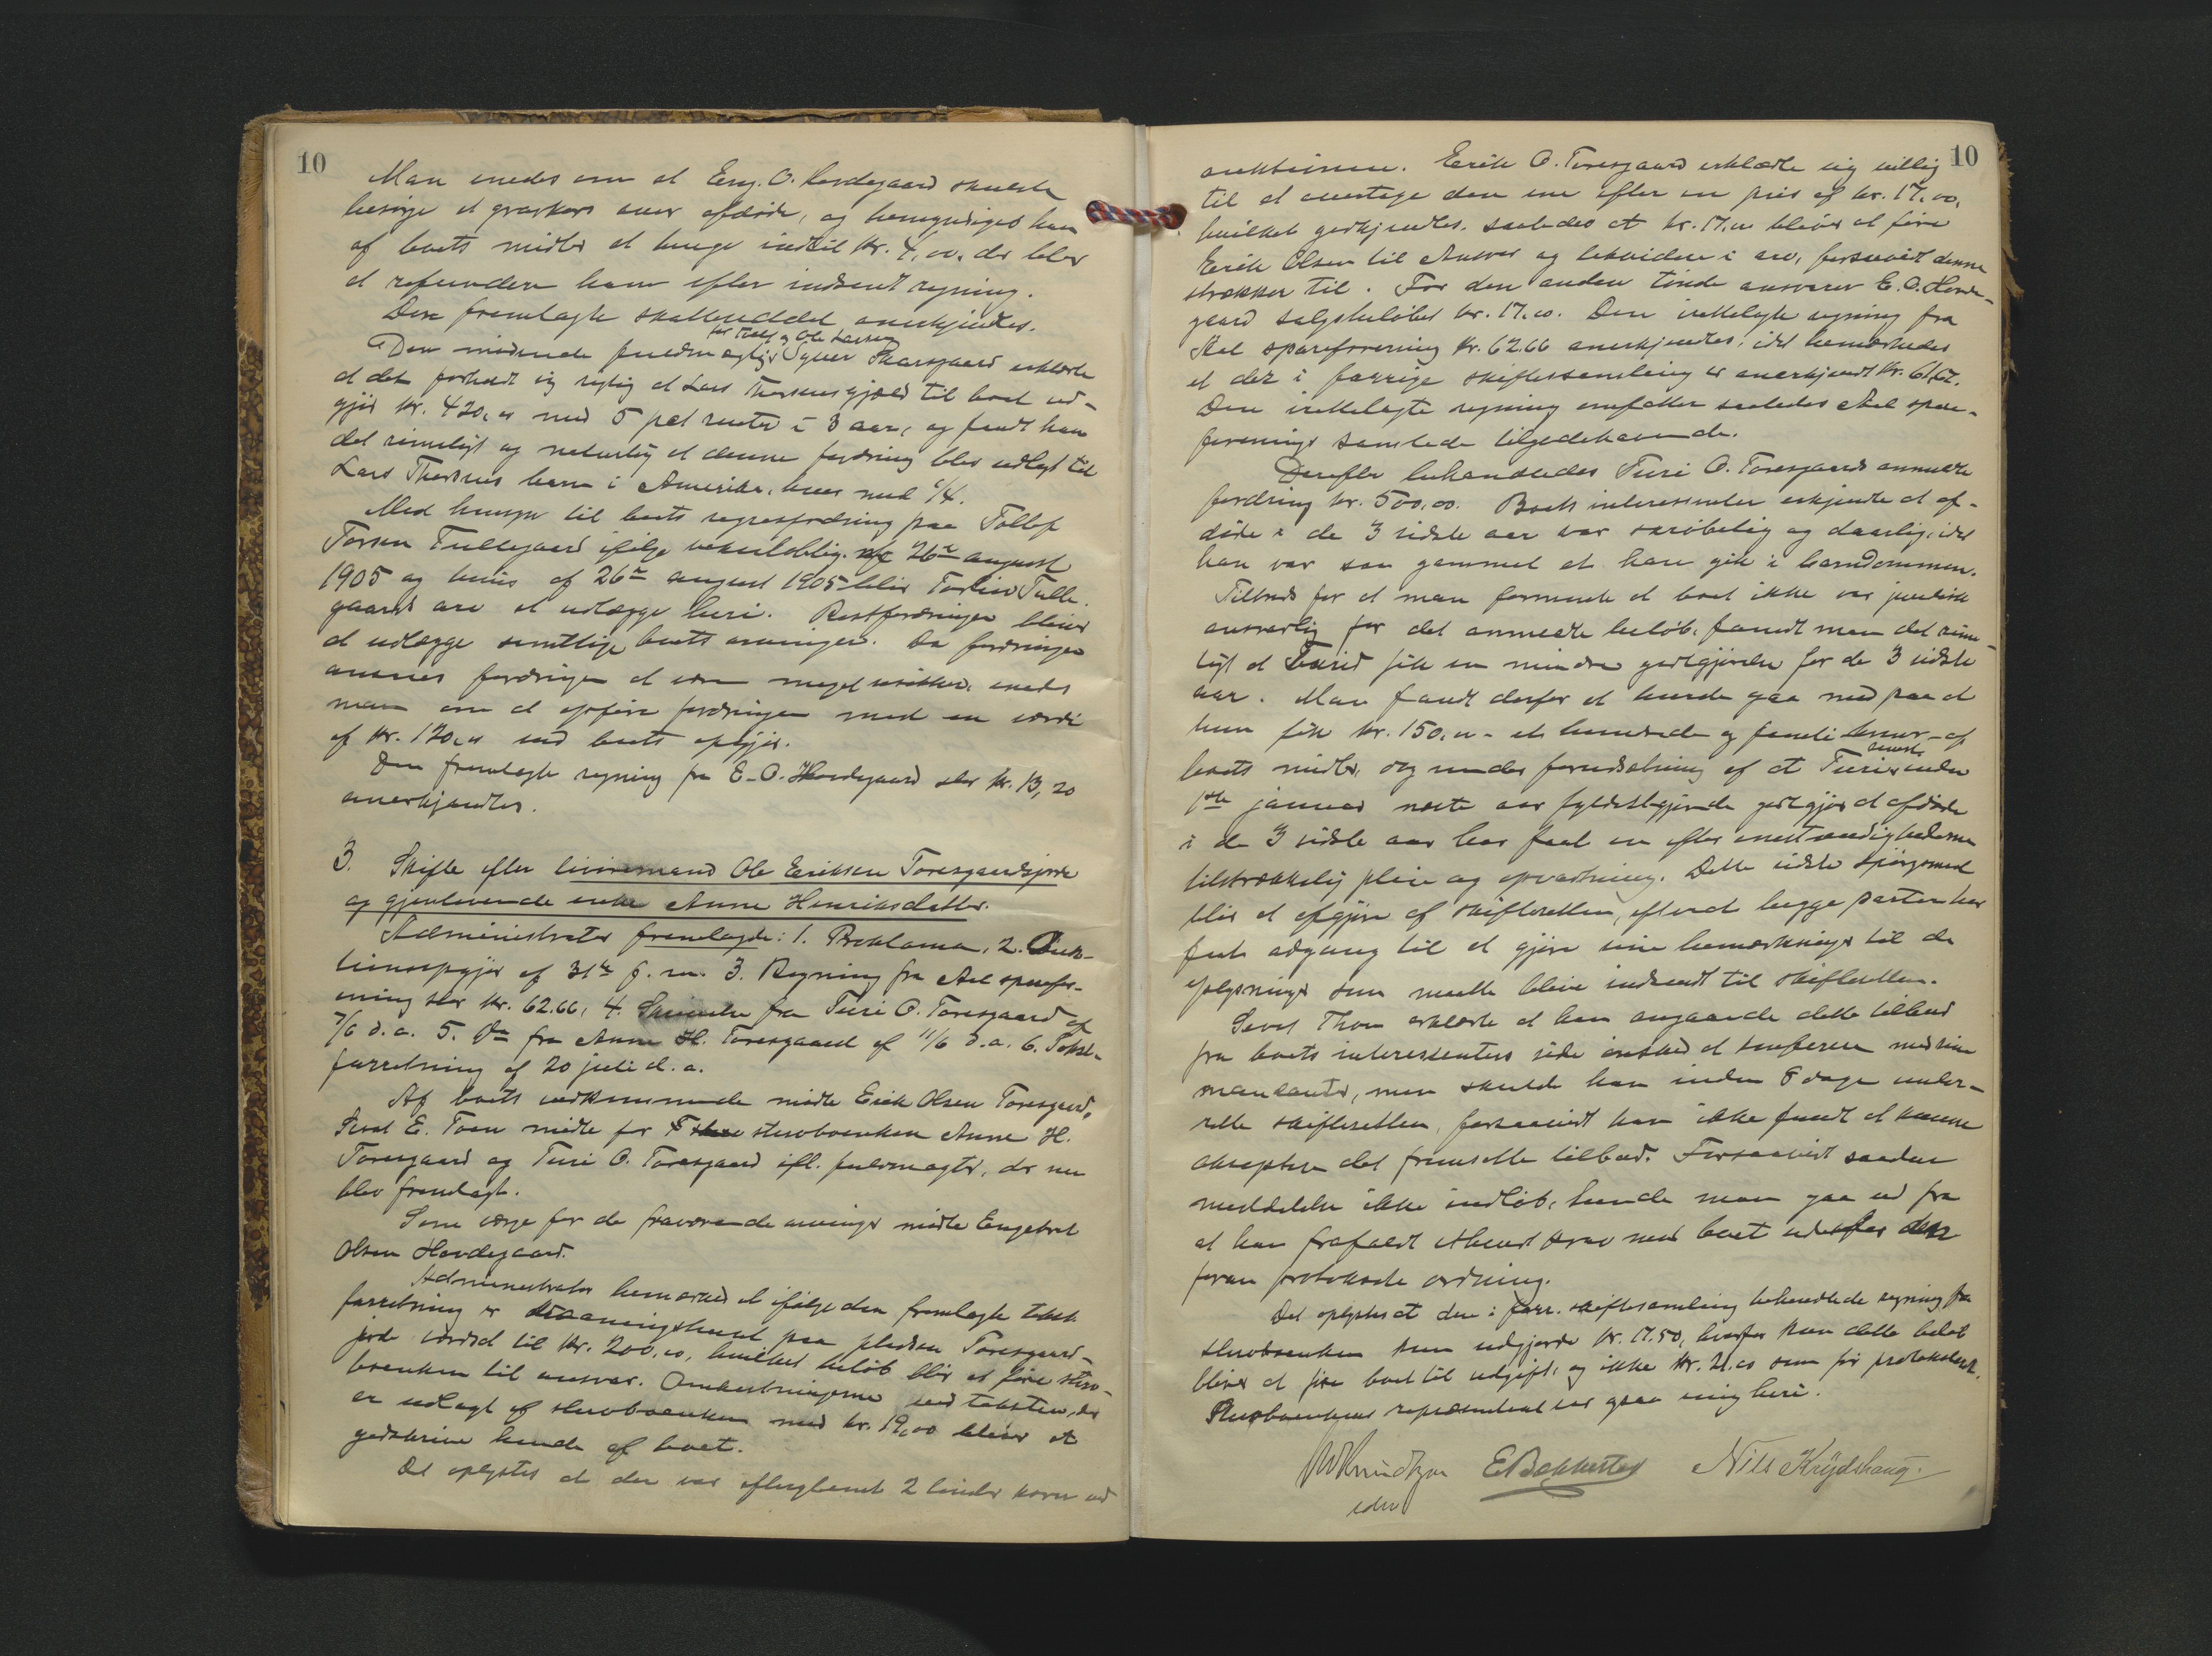 10
Man enedes om at Eng. O. Hovdegaard skulde
besørge et gravkors over afdøde, og bemyndiges han
af boets midler at bruge indtil kr. 4,00, der blev
at refundere ham efter indsendt regning.
Den fremlagte skatteseddel anerkjendtes.
for Tollef og Ole Larsen
Den mødende fuldmægtig Syver Skarsgaard erklærte
at det forholdt sig rigtig at Lars Thorsens gjæld til boet ud-
gjør kr. 420,00 med 5 pct renter i 3 aar, og fandt han
det rimeligt og naturlig at denne fordring blev udlagt til
Lars Thorsens barn i Amerika, hver med 1/4.
Med hensyn til boets regresfordring paa Tollef
Torsen Tullegaard ifølge vekseloblig. af 26de august
1905 og bevis af 26de august 1905 blir Torleiv Tulle-
gaards arv at udlægge heri. Restfordringen bliver
at udlægge samtlige boets arvinger. Da fordringen
ansees fordringen at være meget usikker, enedes
man om at opføre fordringen med en værdi
af kr. 120,00 ved boets opgjør.
Den fremlagte regning fra E. O. Hovdegaard stor kr. 13,20
anerkjendtes.
3. Skifte efter livøresmand Ole Eriksen Toresgaardsjorde
og gjenlevende enke Anne Henriksdatter.
Administrator fremlagde: 1. Proklama, 2. Auk-
tionsopgjør af 31te f. m. 3. Regning fra Aal sparefor-
ening stor kr. 62.66, 4. Skrivelse fra Turi O. Toresgaard af
7/6 d.a. 5. Do fra Anne H. Toresgaard af 11/6 d.a. 6. Takst-
forretning af 20 juli d.a.
Af boets vedkommende mødte Erik Olsen Toresgaard,
Sevat E. Toen mødte for stervboenken Anne H.
Toresgaard og Turi O. Toresgaard ifl. fuldmagter, der nu
blev fremlagt.
Som værge for de fraværende arvinger mødte Engebret
Olsen Hovdegaard.
Administrator bemærked at ifølge den fremlagte takst
forretning er vaaningshuset paa pladsen Toresgaard-
jorde værdsat til kr. 200,00, hvilket beløb blir at føre stervboenken
til ansvar. Omkostningerne ved taksten, der
er udlagt af stervboenken med kr. 19,00 bliver at
godskrive hende af boet.
Det oplystes at der var efterglemt 2 tønder korn ved
10
auktionen. Erik O. Toresgaard erklærte sig villig
til at overtage den ene efter en pris af kr. 17,00,
hvilket godkjendtes, saaledes at kr. 17,00 bliver at føre
Erik Olsen til Ansvar og likvidere i arv, forsaavidt denne
strækker til. For den anden tønde ansvarer E. O. Hovde-
gaard salgsbeløbet kr. 17,00. Den irettelagte regning fra
Aal spareforening kr. 62.66 anerkjendtes, idet bemærkedes
at der i forrige skiftessamling er anerkjendt kr. 61,62.
Den irettelagte regning omfatter saaledes Aal spare-
forenings samlede tilgodehavende.
Derefter behandledes Turi O. Toresgaards anmeldte
fordring kr. 500,00. Boets interessenter erkjendte at af-
døde i de 3 sidste aar var skrøbelig og daarlig, idet
han var saa gammel at han gik i barndommen.
Tiltrods for at man formente at boet ikke var juridisk
ansvarlig for det anmeldte beløb, fandt man det rime-
ligt at Turid fik en mindre godtgjørelse for de 3 sidste
aar. Man fandt derfor at kunde gaa med paa at
hun fik kr. 150,00 - et hundrede og femti kroner - af
boets midler, dog under forudsætning af at Turi senest inden
1ste januar næste aar fyldestgjørende godtgjør at afdøde
i de 3 sidste aar har faat en efter omstændighederne
tilstrækkelig pleie og opvartning. Dette sidste spørgsmaal
blir at afgjøre af skifteretten, efterat begge parter har
faat adgang til at gjøre sine bemærkninger til de
oplysninger som maatte blive indsendt til skifteretten.
Sevat Thoen erklærte at han angaaende dette tilbud
fra boets interessenters side ønsked at konferere med sine
mandanter, men skulde han inden 8 dage under-
rette skifteretten, forsaavidt han ikke fandt at kunne
akseptere det fremsatte tilbud. Forsaavidt saadan
meddelelse ikke indløb, kunde man gaa ud fra
at han frafaldt ethvert krav mod boet udenfor den
foran protokolerte ordning.
Det oplystes at den i forr. skiftesamling behandlede regning fra
stervboenken kun udgjorde kr. 17.50, hvorfor kun dette beløb
bliver at føre boet til udgift, og ikke kr. 21.00 som før protokoleret.
Stervboenkens repræsentant var ogsaa enig heri.
E Bakkestad Nils Krydshaug.